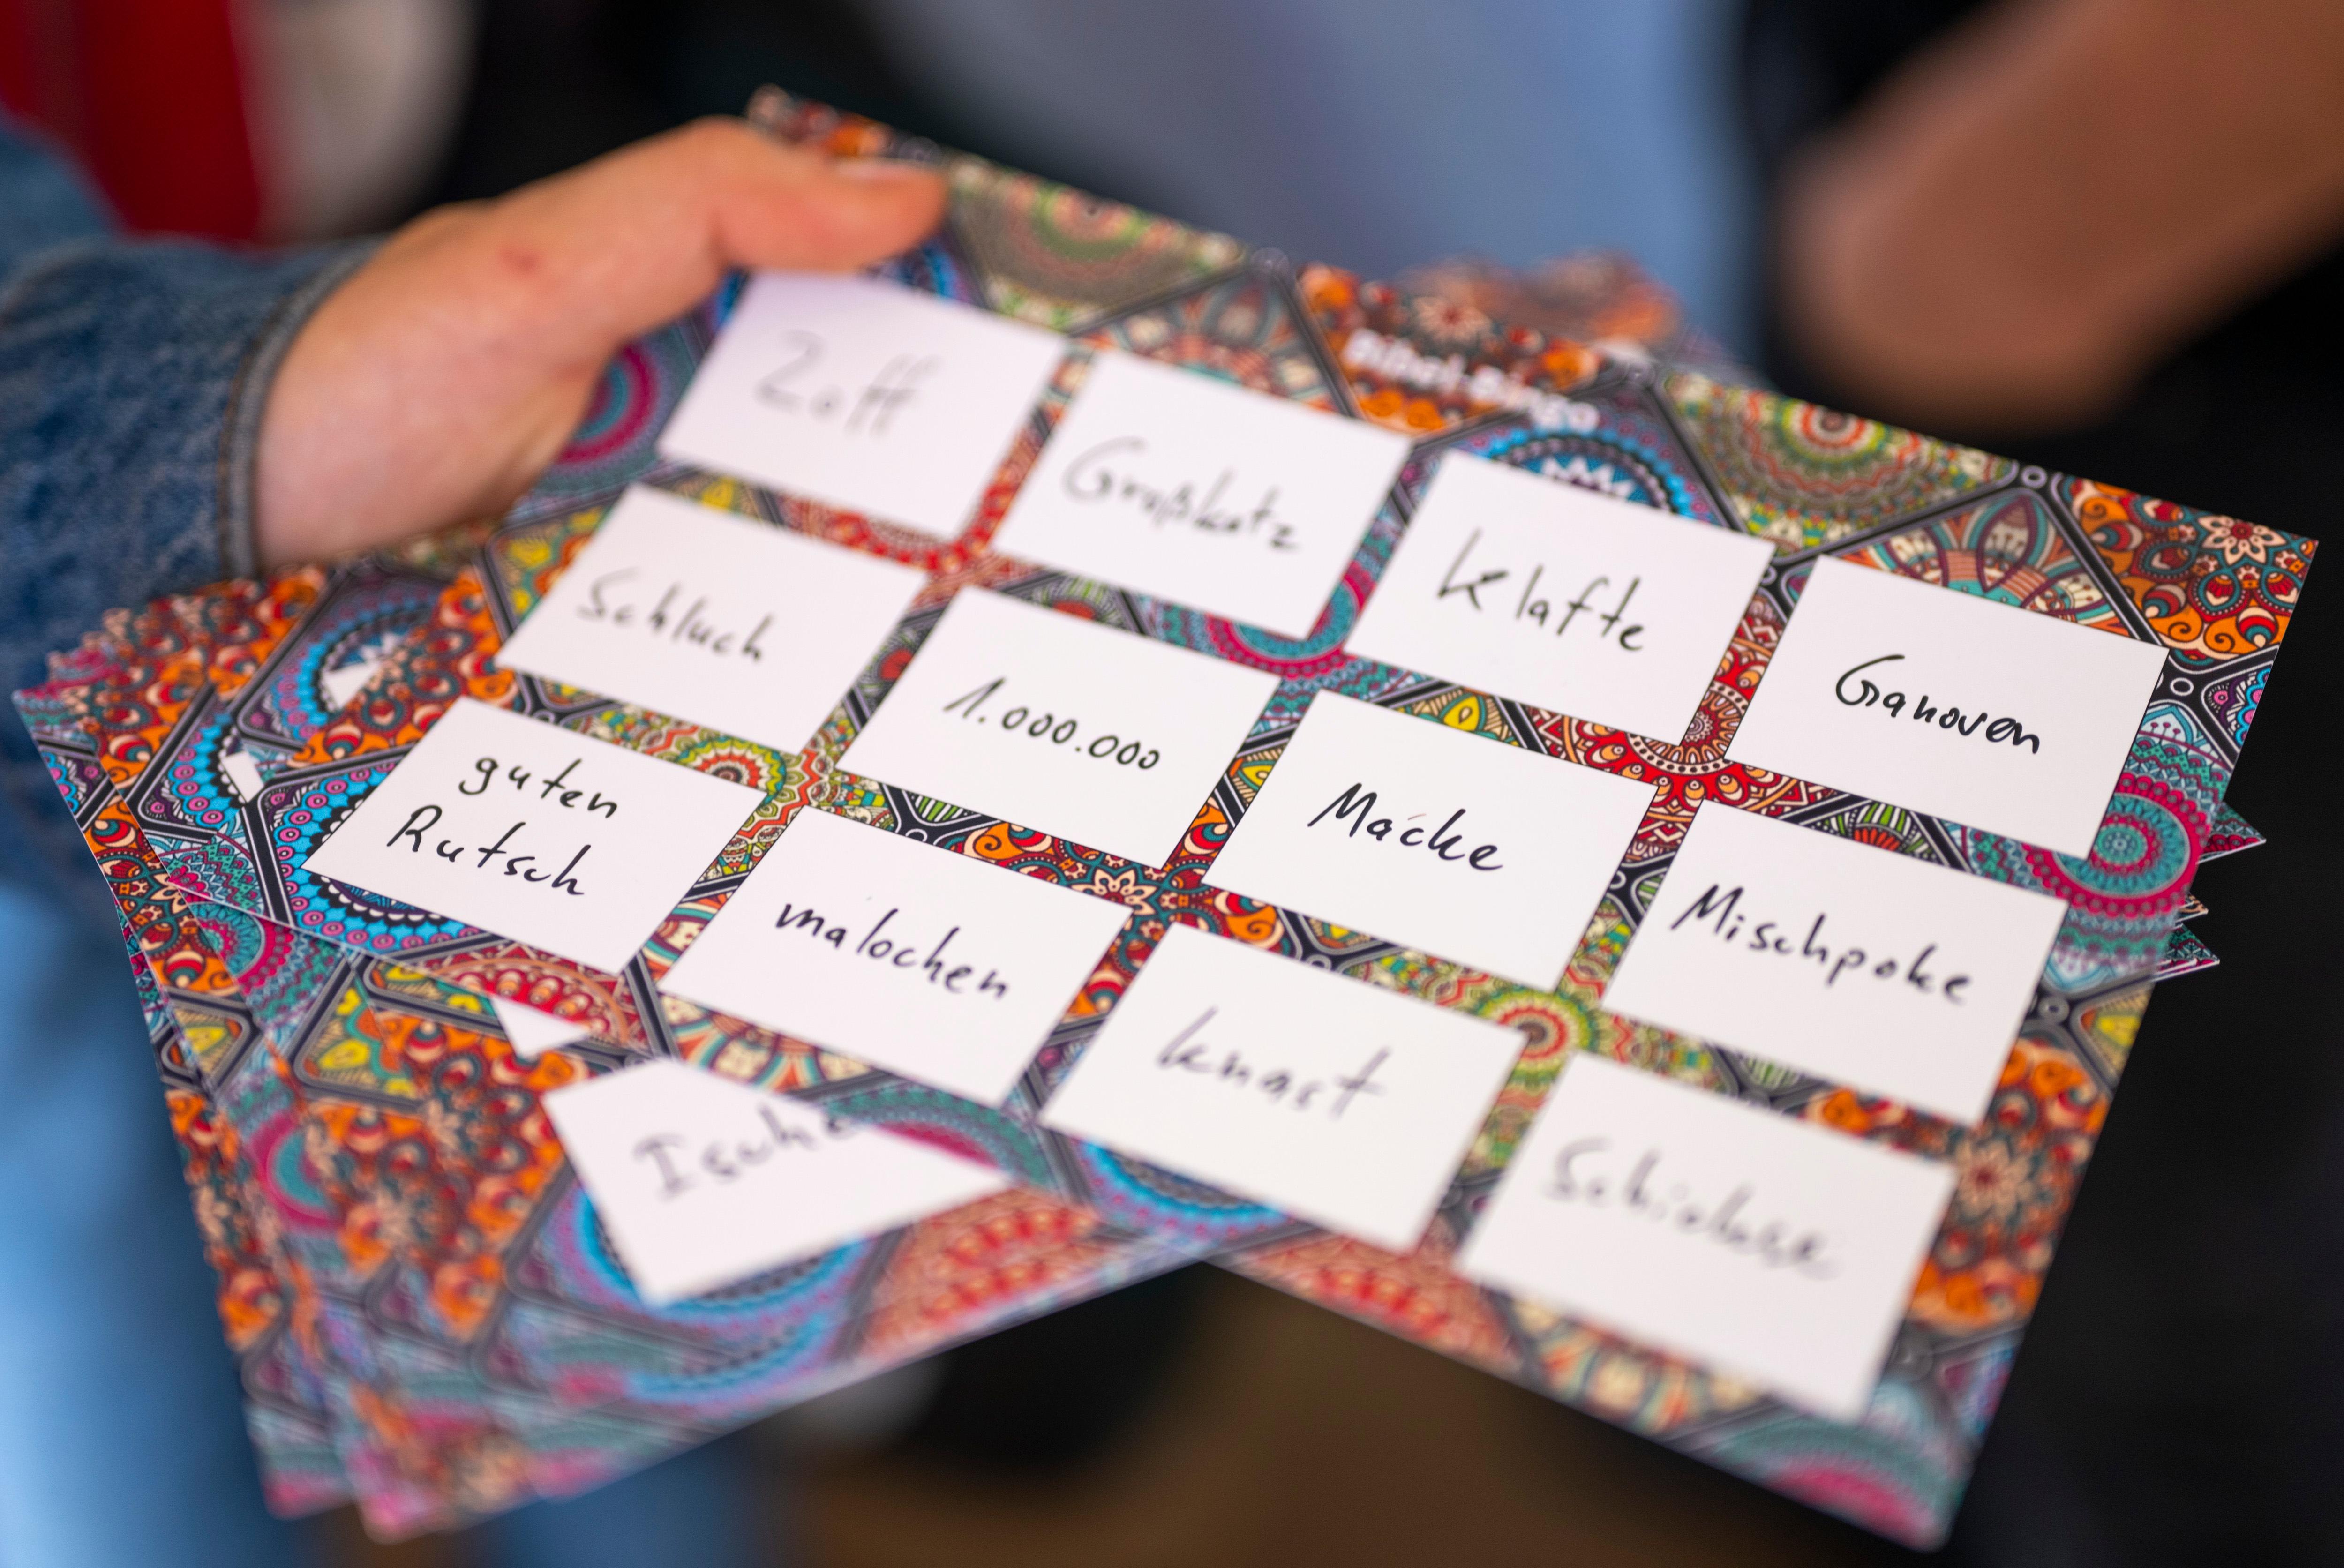 Bibel-Bingo
Zoff
Großkotz
Klafte
Ganoven
Schluch
1.000.000
Macke
Mischpoke
guten
Rutsch
malochen
knast
Schickse
Ische